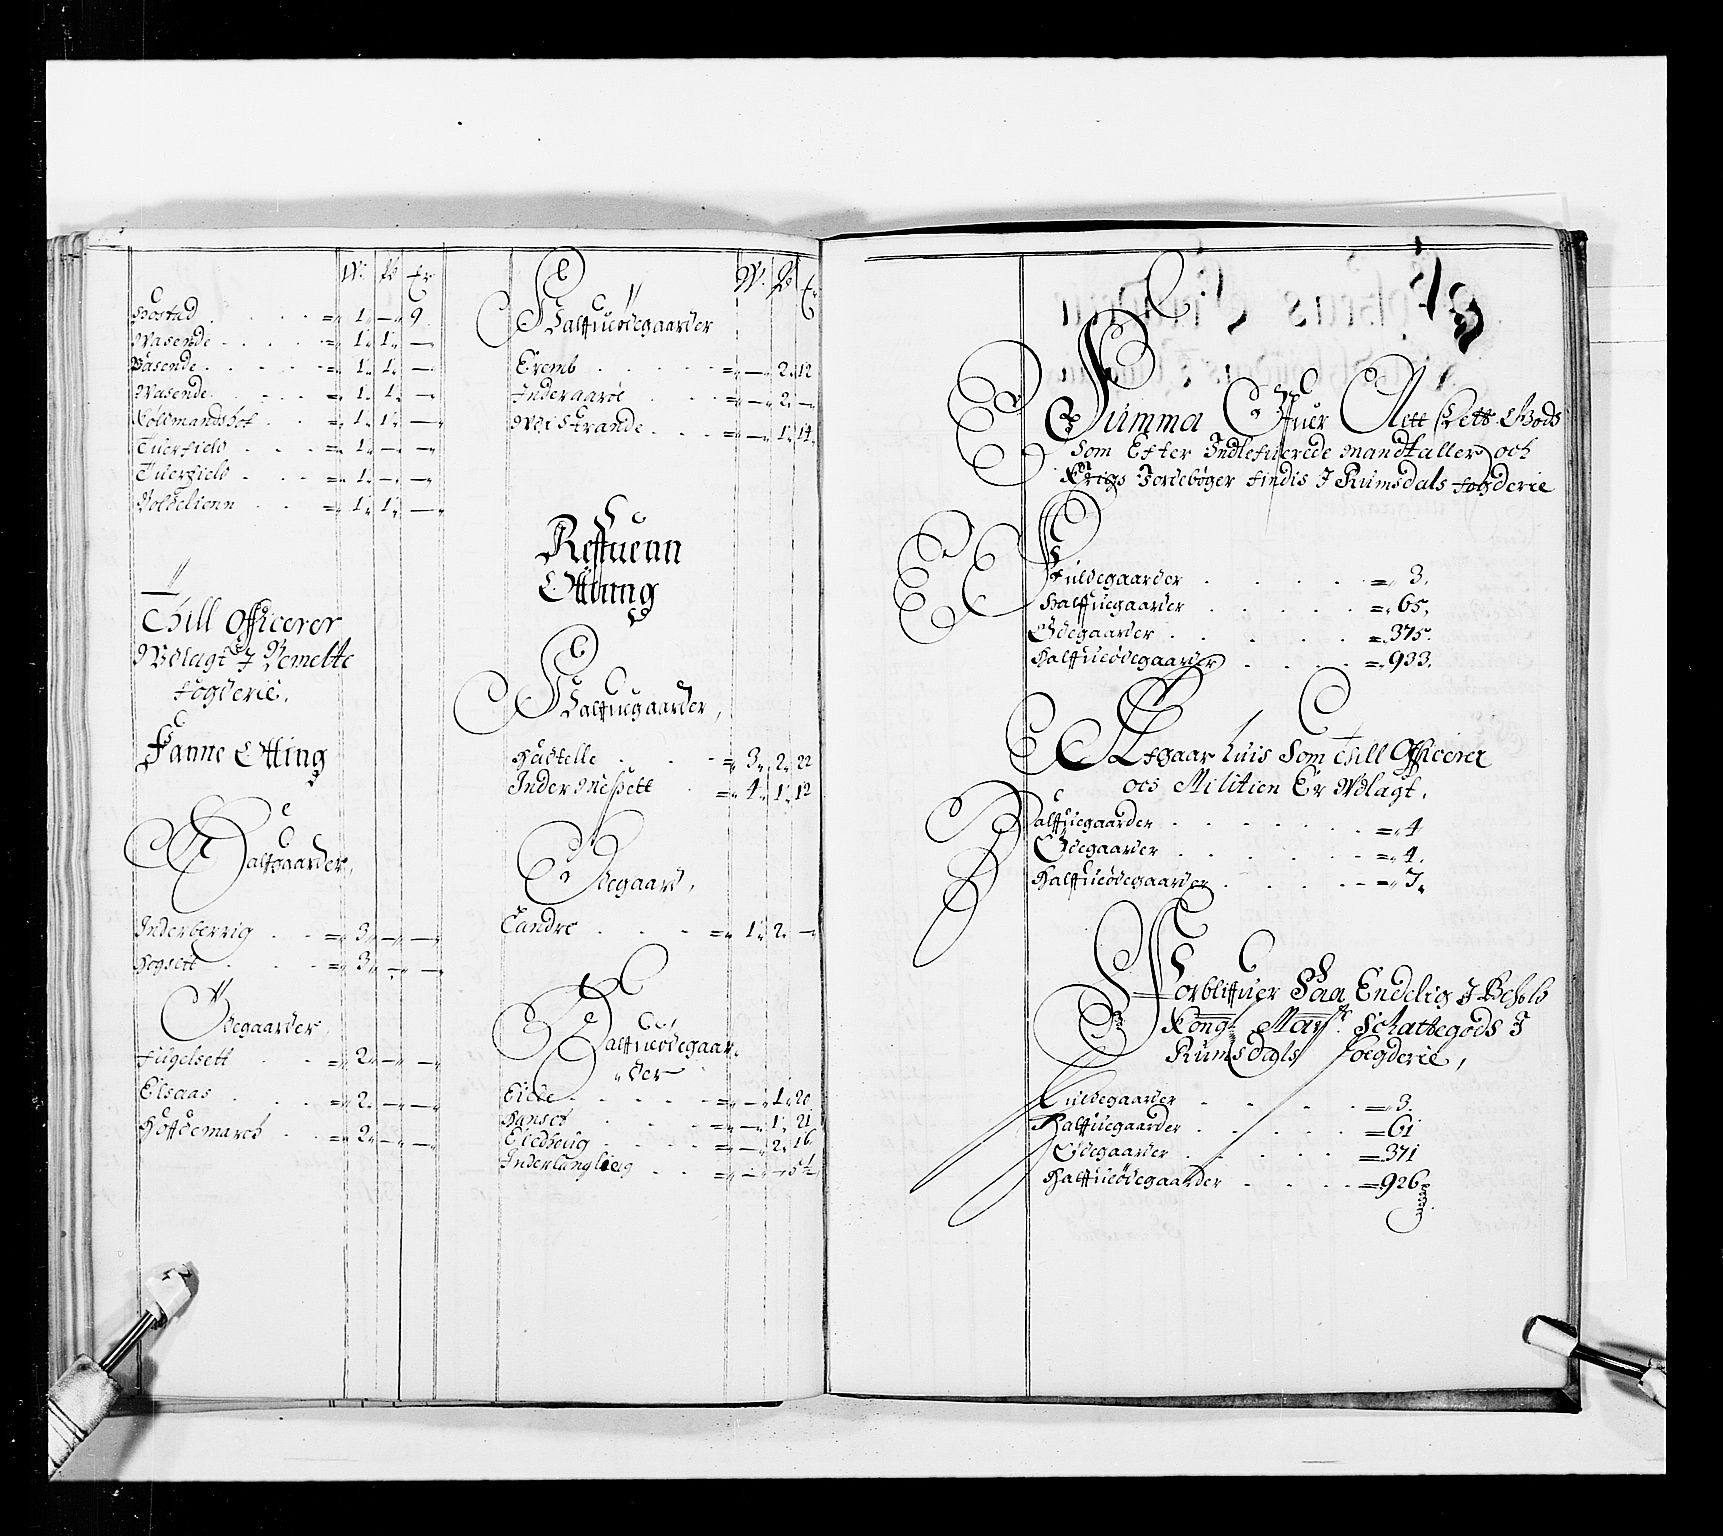 W. ß Er
Hostad = 1. — 9
Wasende = 1. 1. —
Wasende = 1. 1. —
Wasende = 1. 1. —
Koldmandshof = 1. 1. —
Tuerfield = 1. — —
Tuerfield = 1. — —
Woldelienn = 1. 1. —
Thill Officerer
Wdlagt I Bemelte
Fogderie,
Fanne Otting
Halfgaarder,
Inderberrig = 3. — —
Hogsett = 3. — —
Ødegaarder,
Fugelsett = 2. — —
Elsaas = 2. — —
Hoffdemarch = 2. — —
W. ß Er
Halfueødegaarder
Eremb = — 2. 12
Inderaaroe = — 2. —
Wei Strande = — 1. 14
Reffuenn
Ottbing
Halffuegaarder,
Hustelle = 3. 2. 22
Inder Missett = 4. 1. 12
Ødegaard,
Tandre = 1. 2. —
Halffueødegaar-
der
Eide = — 1. 20
Hansed = — 1. 21
Eledheug = — 2. 16
Inderlanglieg = — — 5½
Summa Ofuer Alett Krett Gods
Som Efter Indlefuerede mandtaller och
Krigs Jordebøger findis I Rumsdals fogderie
Fuldegaarder = 3.
Halffuegaarder = 65.
Ødegaarder = 375.
Halffueødegaarder = 933.
Afgaar huis Som Thill Officerer
ocs Militien Er Wdlagt.
Halffuegaarder = 4
Ødegaarder = 4.
Halffueødegaarder = 7.
Forbliffuer Saa Endelig I Behold
Kongl. Mayst. Schattegods I
Rumsdals foegderie,
Fuldegaarder = 3.
Halffuegaarder = 61
Ødegaarder = 371
Halffueödegaarder = 926